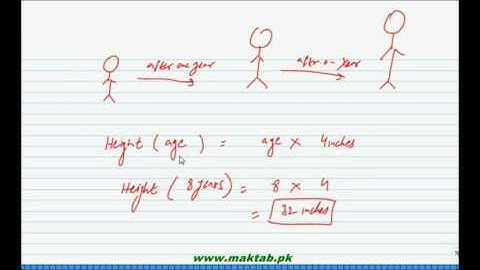 after one year
after on year
Height ( age ) = age × 4 inches
Height ( 8 years) = 8 × 4
= 32 inches
www.maktab.pk